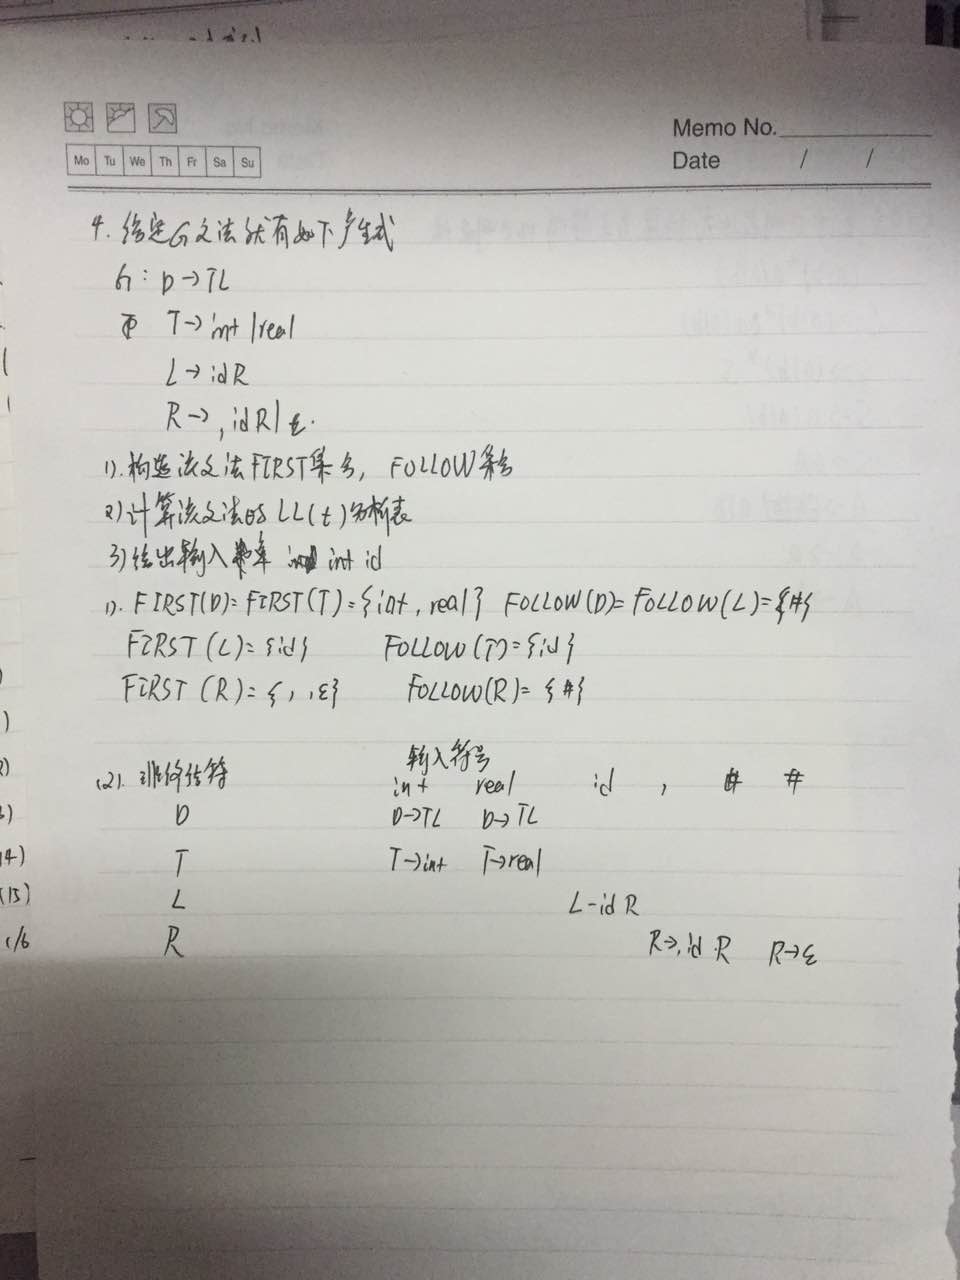 Memo No.
Mo Tu We Th Fr Sa Su
Date / /
4. 给定G文法就有如下产生式
G: D→TL
T→int|real
L→idR
R→,idR|ε.
1).构造该文法FIRST集合, FOLLOW集合
2)计算该文法的LL(1)分析表
3)给出输入串 int id
1). FIRST(D)=FIRST(T)={int, real} FOLLOW(D)=FOLLOW(L)={#}
FIRST(L)={id} FOLLOW(T)={id}
FIRST(R)={,,ε} FOLLOW(R)={#}
输入符号
(2). 非终结符 int real id , #
D D→TL D→TL
T T→int T→real
L L-idR
R R→,idR R→ε
2)
3)
14)
(15)
c/6